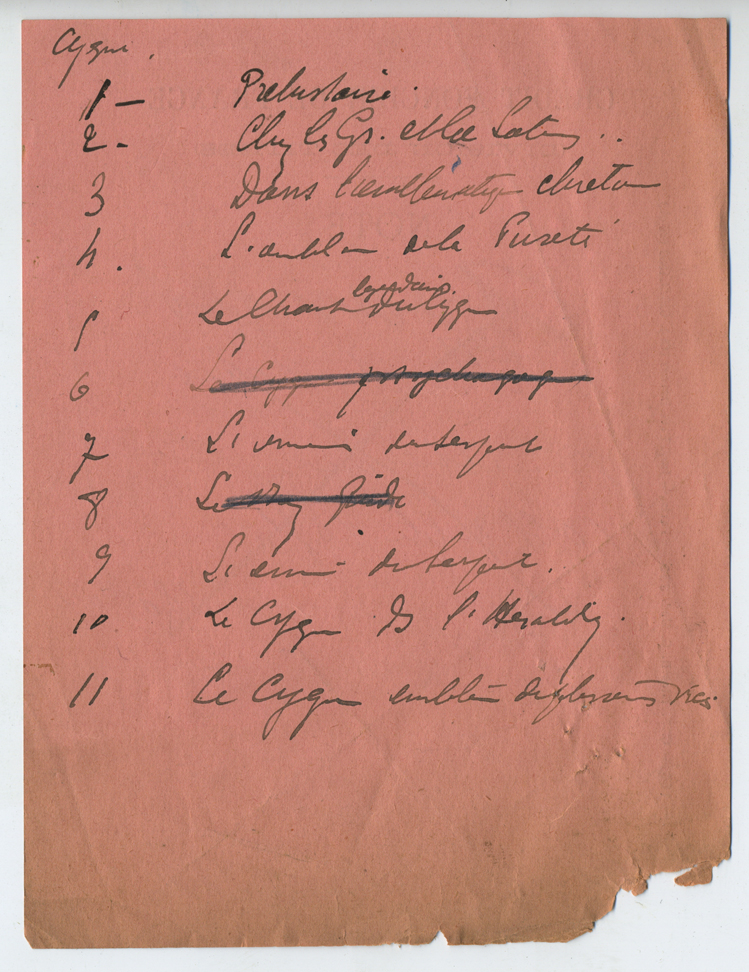 Cygne.
1 - Préhistoire.
2 - Chez les Gr. et les Latins ..
3 Dans l'emblématique chrétien
4. L'emblem de la Pureté
5 Le Chant légendaire du Cygne
6 Le Cygne psychagogue
7 L'ennemi du serpent
8 Le
9 L'ennemi du serpent.
10 Le Cygne Ds l'Heraldiq.
11 Le Cygne emblème de plusieurs vices